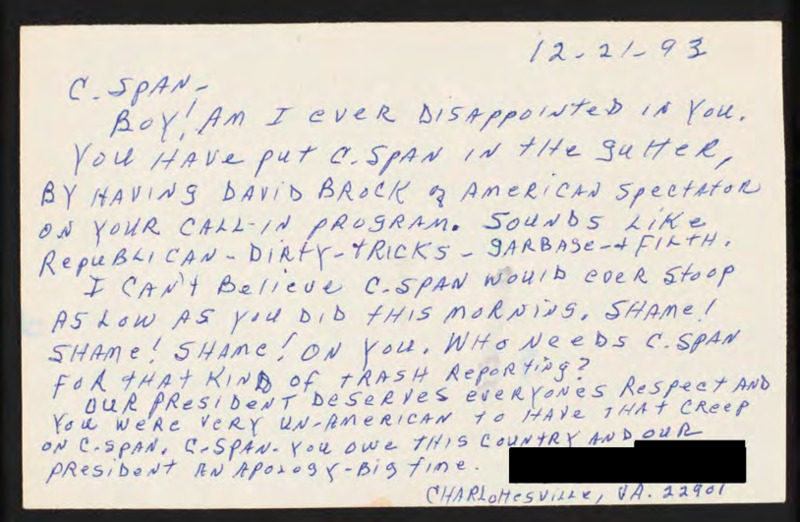 12-21-93
C. SPAN-
BOY! AM I EVER DISAPPOINTED IN YOU.
YOU HAVE PUT C.SPAN IN THE GUTTER,
BY HAVING DAVID BROCK of AMERICAN SPECTATOR
ON YOUR CALL-IN PROGRAM. SOUNDS LIKE
REPUBLICAN-DIRTY-TRICKS-GARBAGE-+ FILTH.
I CAN'T BELIEVE C.SPAN WOULD EVER STOOP
AS LOW AS YOU DID THIS MORNING. SHAME!
SHAME! SHAME! ON YOU. WHO NEEDS C.SPAN
FOR THAT KIND OF TRASH REPORTING?
OUR PRESIDENT DESERVES EVERYONES RESPECT AND
YOU WERE VERY UN-AMERICAN TO HAVE THAT CREEP
ON C-SPAN. C-SPAN-YOU OWE THIS COUNTRY AND OUR
PRESIDENT AN APOLOGY-BIG TIME.
CHARLOTTESVILLE, VA. 22901